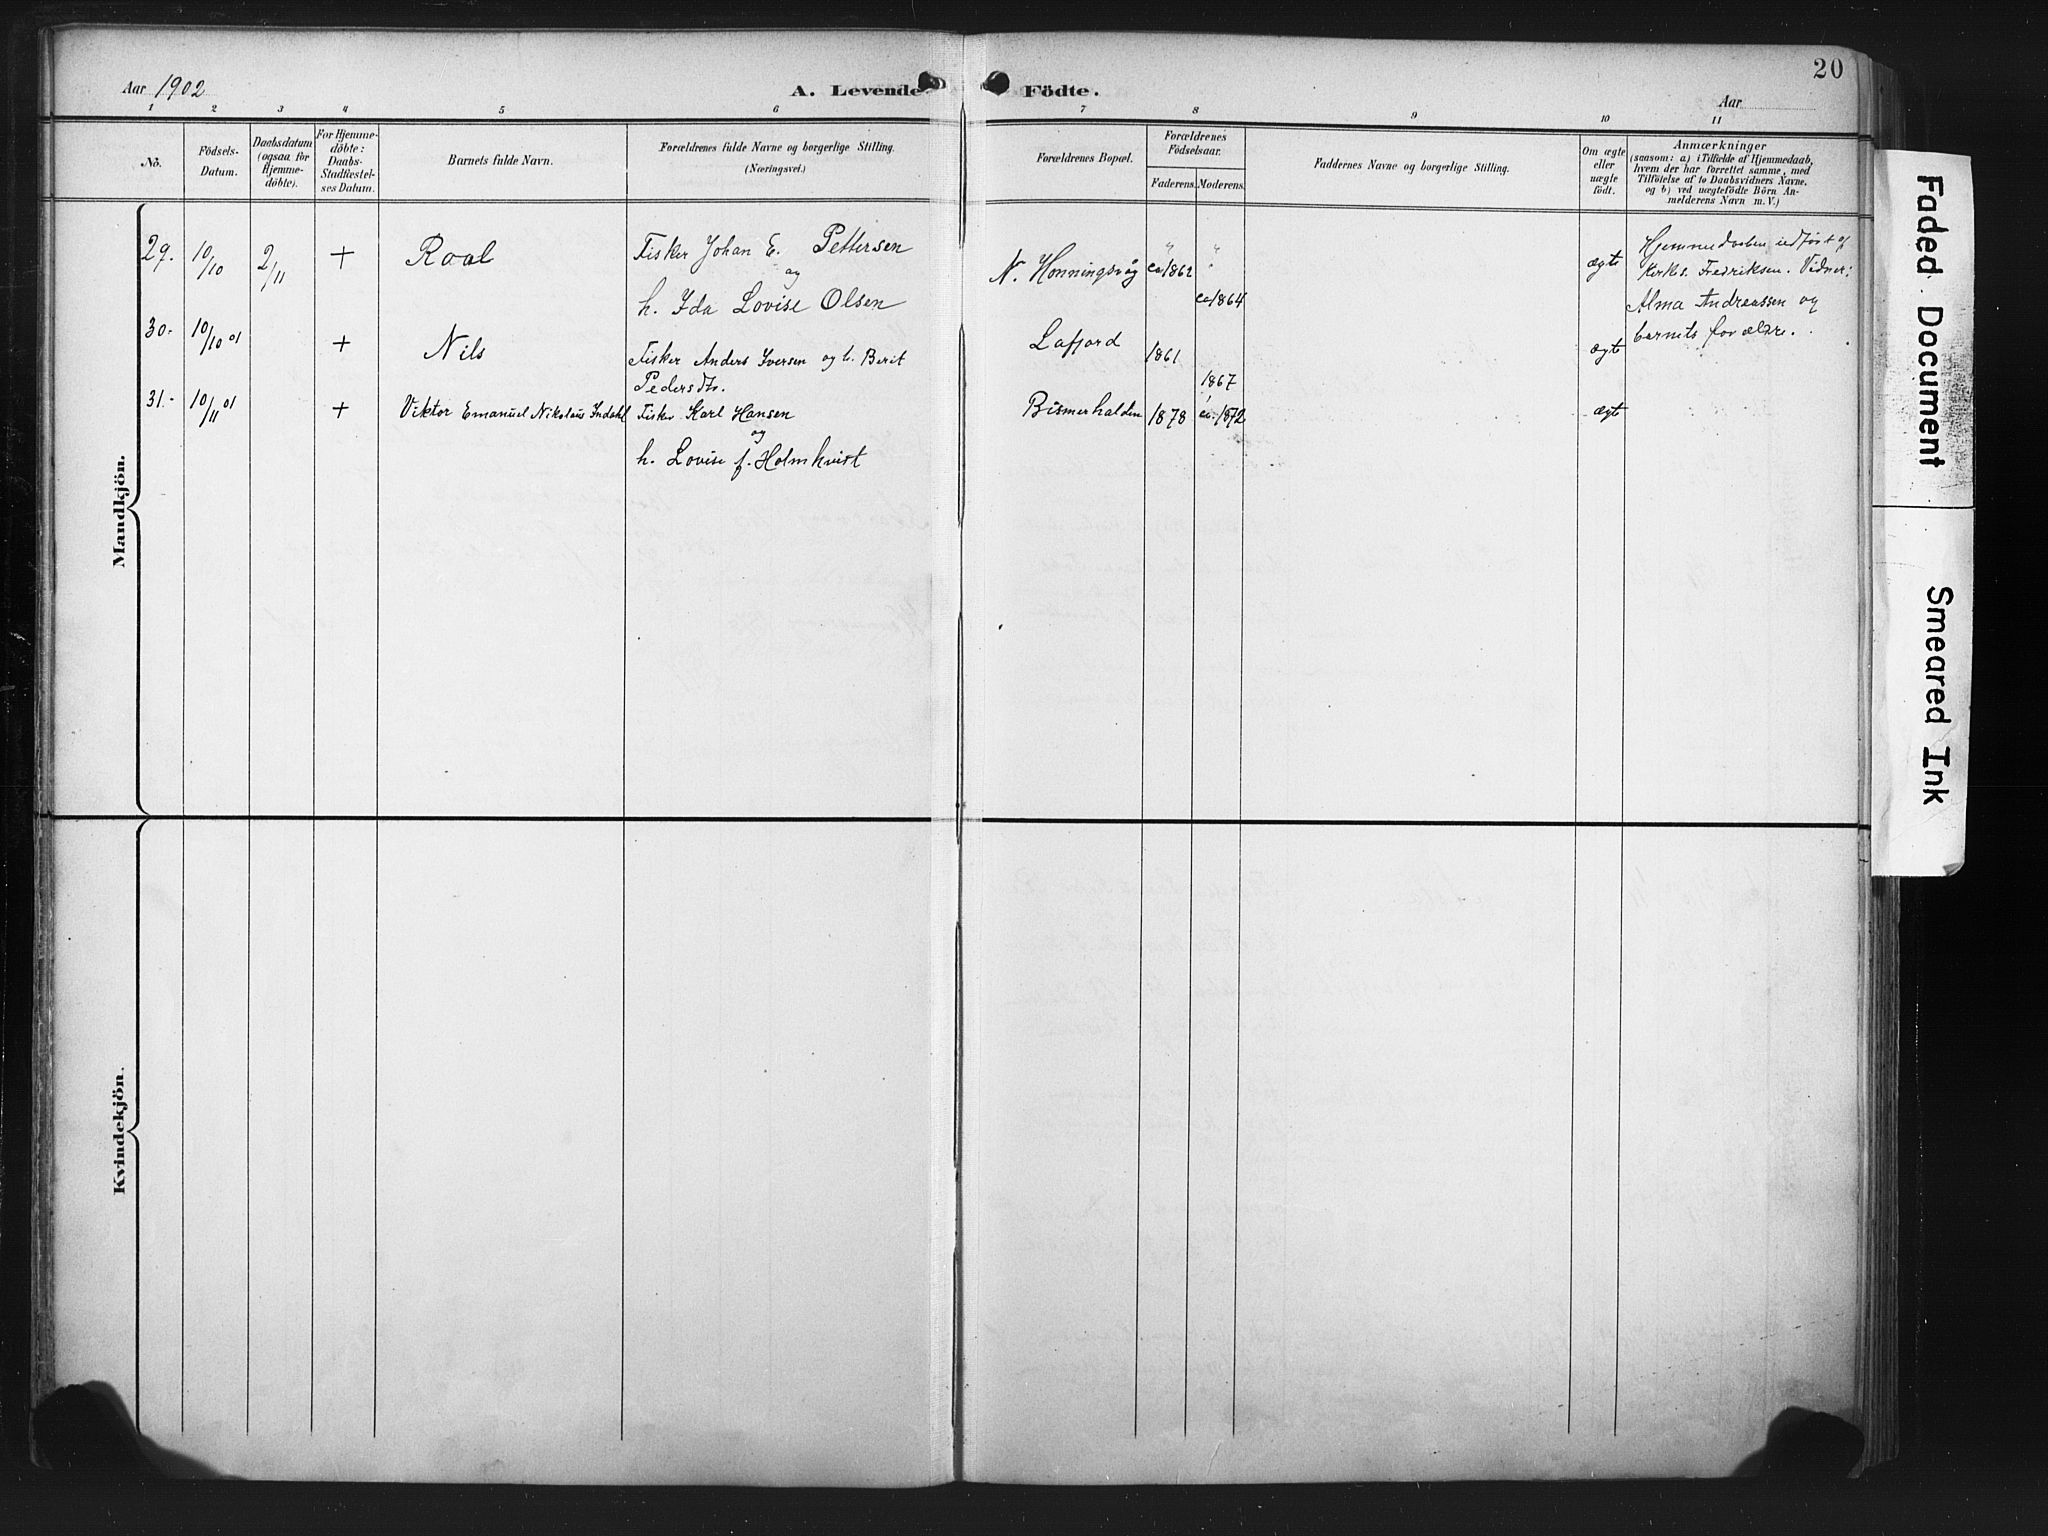 20
Aar 1902
A. Levende Födte.
Aar
1 2 3 4 5 6 7 8 9 10 11
No.
Födsels-Datum.
Daabsdatum (ogsaa for Hjemme-döbte).
For Hjemme-döbte: Daabs-Stadfæstel-ses Datum.
Barnets fulde Navn.
Forældrenes fulde Navne og borgerlige Stilling.
(Næringsvei.)
Forældrenes Bopæl.
Forældrenes Födselsaar.
Faderens. Moderens.
Faddernes Navne og borgerlige Stilling.
Om ægte eller uægte födt.
Anmærkninger
(saasom: a) i Tilfælde af Hjemmedaab, hvem der har forrettet samme, med Tilföielse af to Daabsvidners Navne, og b) ved uægtefödte Börn An-melderens Navn m. V.)
Mandkjön.
29. 10/10 2/11 + Roal Fisker Johan E. Pettersen
og
h. Ida Lovise Olsen
N. Honningsvåg ca 1862 ca 1864 ægte
Hjemmedaaben udført af
Kirks. Fredriksen. Vidner:
Alma Andreassen og
barnets forældre.
30. 10/10 01 + Nils Fisker Anders Iversen og h. Berit
Pedersdtr.
Lafjord 1861 1867 ægte
31. 10/11 01 + Viktor Emanuel Nikolaus Indahl Fisker Karl Hansen
og
h. Lovise f. Holmkvist
Bismerhalden 1878 ca. 1872 ægte
Kvindekjön.
Faded Document
Smeared Ink